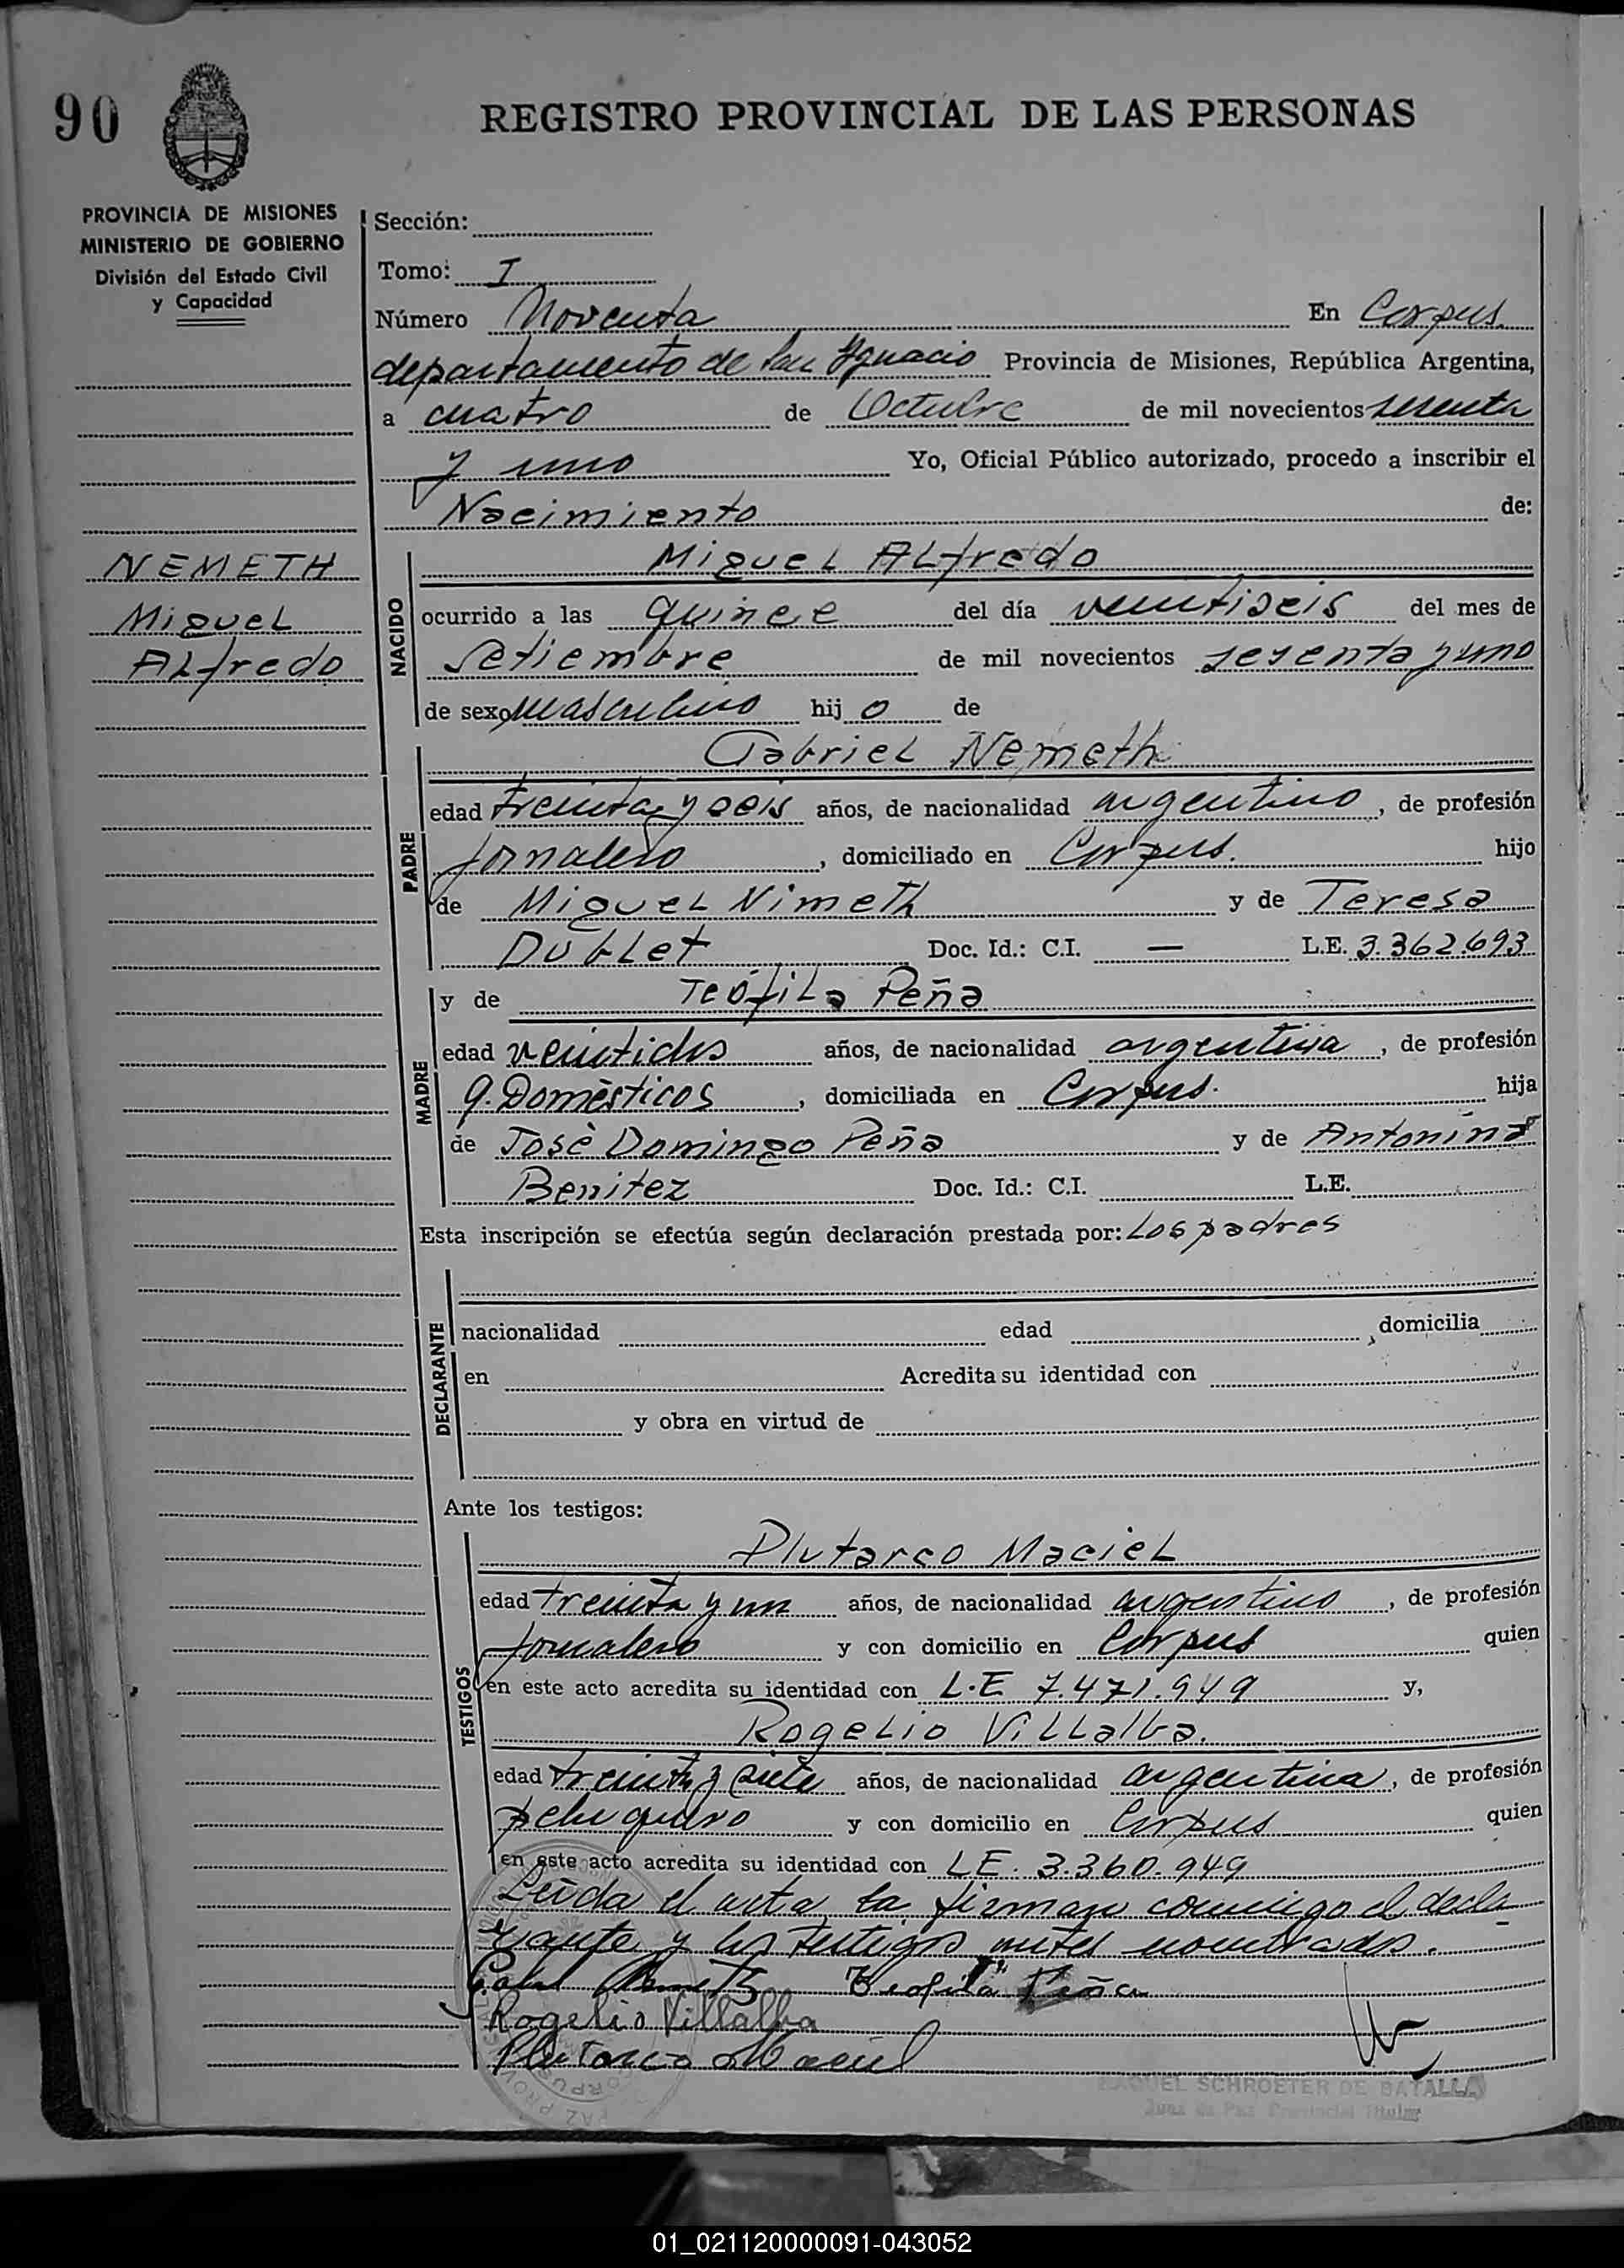 90
REGISTRO PROVINCIAL DE LAS PERSONAS
PROVINCIA DE MISIONES
MINISTERIO DE GOBIERNO
División del Estado Civil
y Capacidad
Sección:
Tomo: I
Número Noventa En Corpus
departamento de San Ygnacio Provincia de Misiones, República Argentina,
a cuatro de Octubre de mil novecientos sesenta
y uno Yo, Oficial Público autorizado, procedo a inscribir el
Nacimiento de:
NEMETH
Miguel
Alfredo
NACIDO
Miguel Alfredo
ocurrido a las quince del día veintiseis del mes de
Setiembre de mil novecientos sesenta y uno
de sexo masculino hijo de
PADRE
Gabriel Nemeth
edad treinta y seis años, de nacionalidad argentino, de profesión
jornalero, domiciliado en Corpus. hijo
de Miguel Nimeth y de Teresa
Dublet Doc. Id.: C.I. — L.E. 3.362.693
MADRE
y de Teófila Peña
edad veintidos años, de nacionalidad argentina, de profesión
q. Domèsticos, domiciliada en Corpus. hija
de Josè Domingo Peña y de Antonina
Benitez Doc. Id.: C.I. L.E.
Esta inscripción se efectúa según declaración prestada por: Los padres
DECLARANTE
nacionalidad edad , domicilia
en Acredita su identidad con
y obra en virtud de
Ante los testigos:
TESTIGOS
Plutarco Maciel
edad treinta y un años, de nacionalidad argentino, de profesión
jornalero y con domicilio en Corpus quien
en este acto acredita su identidad con L.E 7.471.949 y,
Rogelio Villalba.
edad treinta y siete años, de nacionalidad argentina, de profesión
peluquero y con domicilio en Corpus quien
en este acto acredita su identidad con LE. 3.360.949
Leida el acta, la firman conmigo el decla
rante y los testigos antes nombrados.
Teofila Peña
Rogelio Villalba
Plutarco Maciel
RAQUEL SCHROETER DE BATALLA
Juez de Paz Provincial Titular
01_021120000091-043052